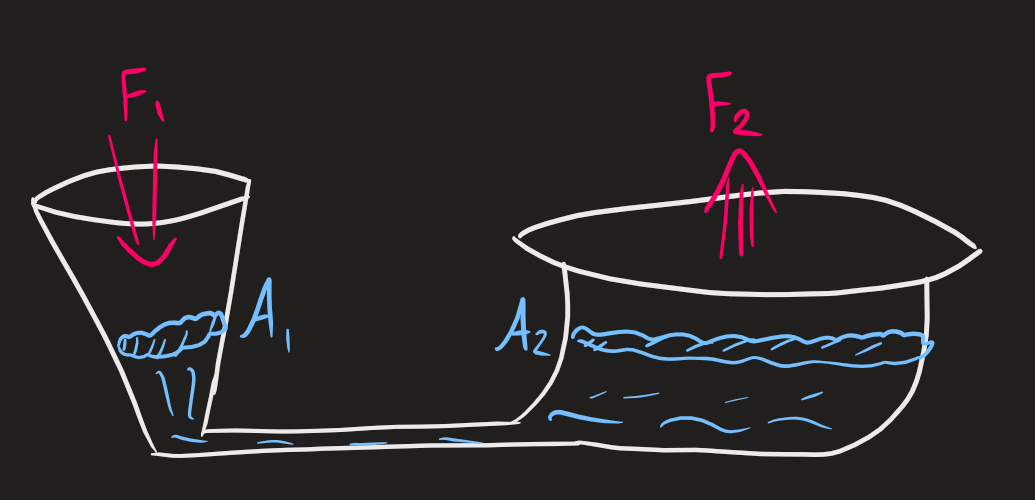 F₁
F₂
A₁
A₂